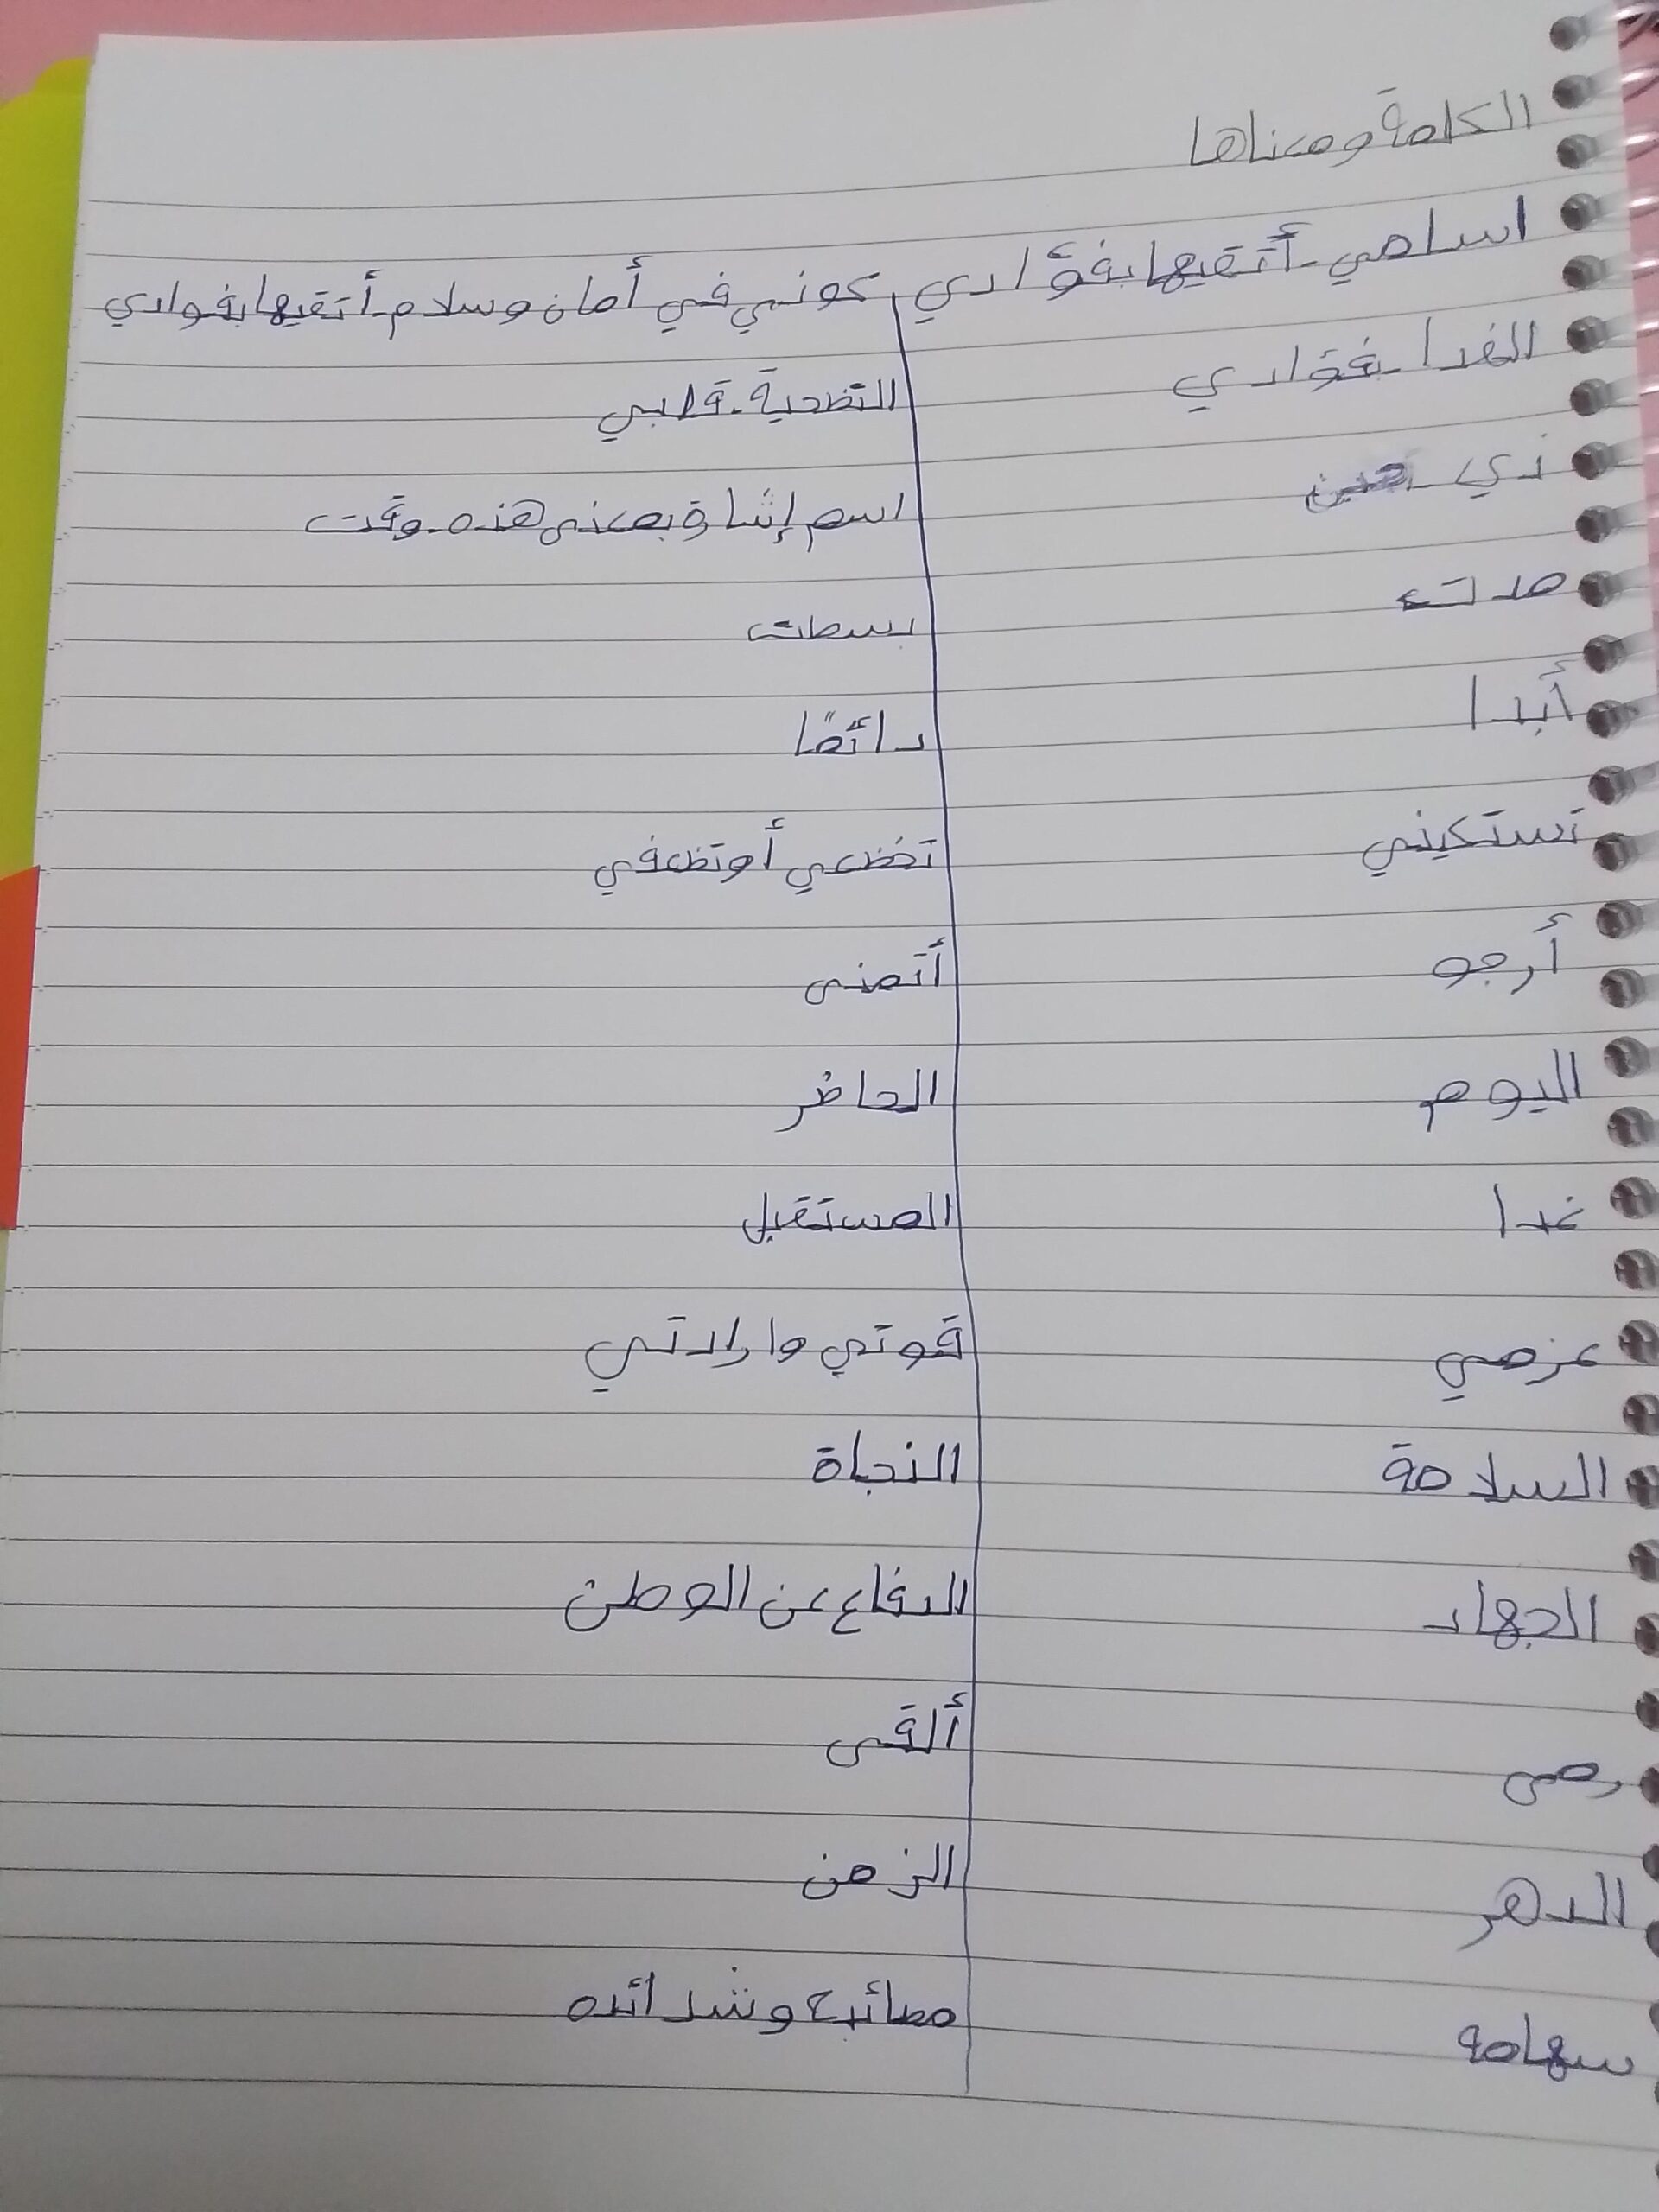 الكلمة ومعناها
اسلمي - أتقيها بفؤادي كوني في أمان وسلام - أتقيها بفوادي
الفدا - فؤادي التضحية - قلبي
ذي - حين اسم إشاة بمعنى هذه - وقت
مدت بسطت
أبدا دائمًا
تستكيني تخضعي أو تضعفي
أرجو أتمنى
اليوم الحاضر
غدا المستقبل
عزمي قوتي وارادتي
السلامة النجاة
الجهاد الدفاع عن الوطن
رمى ألقى
الدهر الزمن
سهامه وشدائده